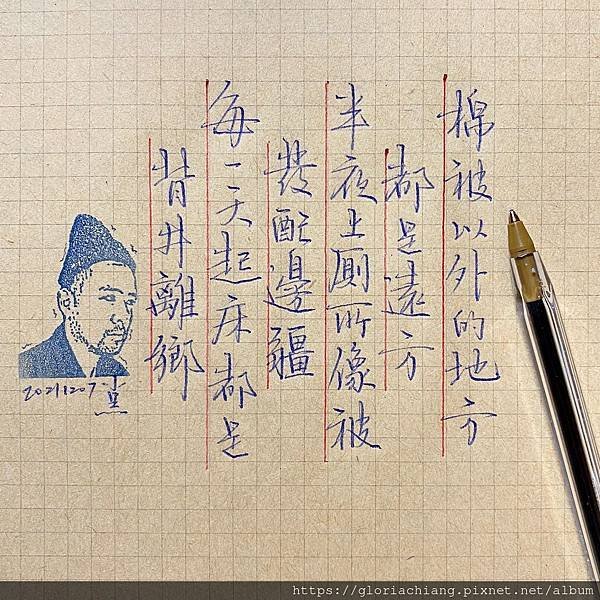 棉被以外的地方
都是遠方
半夜上廁所像被
發配邊疆
每一天起床都是
背井離鄉
20211207 薰
https://gloriachiang.pixnet.net/album